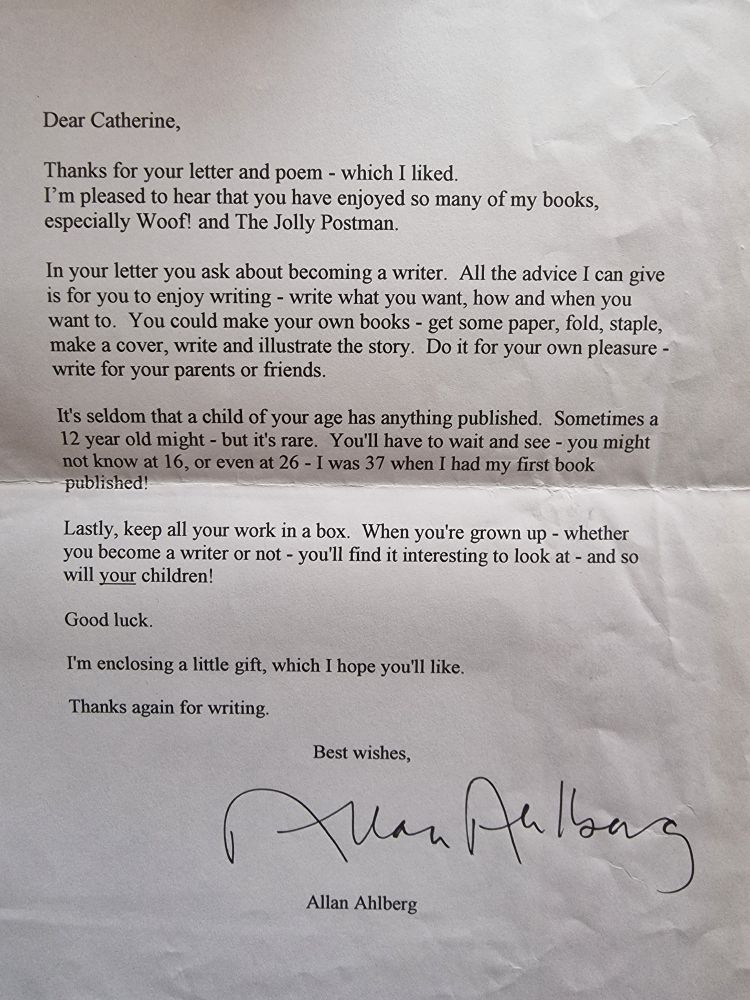 Dear Catherine,
Thanks for your letter and poem - which I liked.
I'm pleased to hear that you have enjoyed so many of my books,
especially Woof! and The Jolly Postman.
In your letter you ask about becoming a writer.  All the advice I can give
is for you to enjoy writing - write what you want, how and when you
want to.  You could make your own books - get some paper, fold, staple,
make a cover, write and illustrate the story.  Do it for your own pleasure -
write for your parents or friends.
It's seldom that a child of your age has anything published.  Sometimes a
12 year old might - but it's rare.  You'll have to wait and see - you might
not know at 16, or even at 26 - I was 37 when I had my first book
published!
Lastly, keep all your work in a box.  When you're grown up - whether
you become a writer or not - you'll find it interesting to look at - and so
will your children!
Good luck.
I'm enclosing a little gift, which I hope you'll like.
Thanks again for writing.
Best wishes,
Allan Ahlberg
Allan Ahlberg